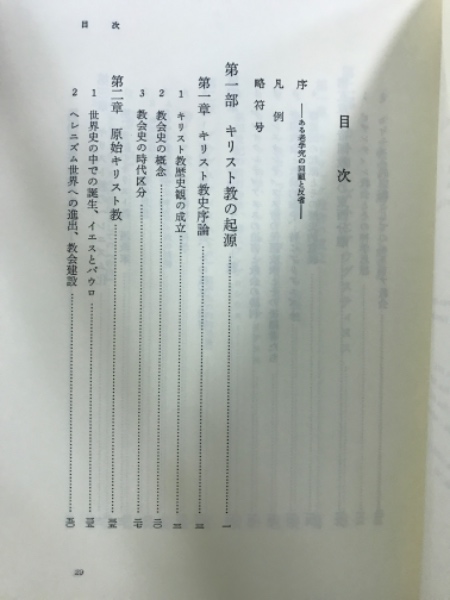 目次
目　次
序　――ある老学究の回顧と反省――
凡例
略符号
第一部　キリスト教の起源……一
第一章　キリスト教史序論……
1　キリスト教歴史観の成立……
2　教会史の概念……
3　教会史の時代区分……
第二章　原始キリスト教……
1　世界史の中での誕生、イエスとパウロ……
2　ヘレニズム世界への進出、教会建設……
29